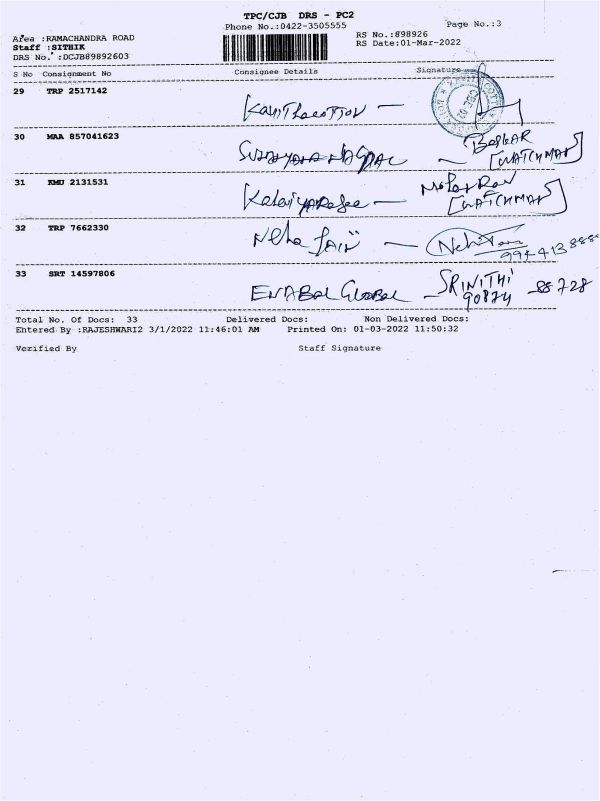 TPC/CJB DRS - PC2
Phone No.:0422-3505555
Page No.:3
Area :RAMACHANDRA ROAD
Staff :SITHIK
DRS No. :DCJB89892603
RS No.:898926
RS Date:01-Mar-2022
S No Consignment No Consignee Details Signature
29 TRP 2517142
30 MAA 857041623
BASKAR
[WATCHMAN]
31 KMU 2131531
[WATCHMAN]
32 TRP 7662330
Neha Jain — Neha Jain
33 SRT 14597806
ENABAL GLOBAL — SRINITHI
90874 - 88728
Total No. Of Docs: 33 Delivered Docs: Non Delivered Docs:
Entered By :RAJESHWARI2 3/1/2022 11:46:01 AM Printed On: 01-03-2022 11:50:32
Verified By Staff Signature